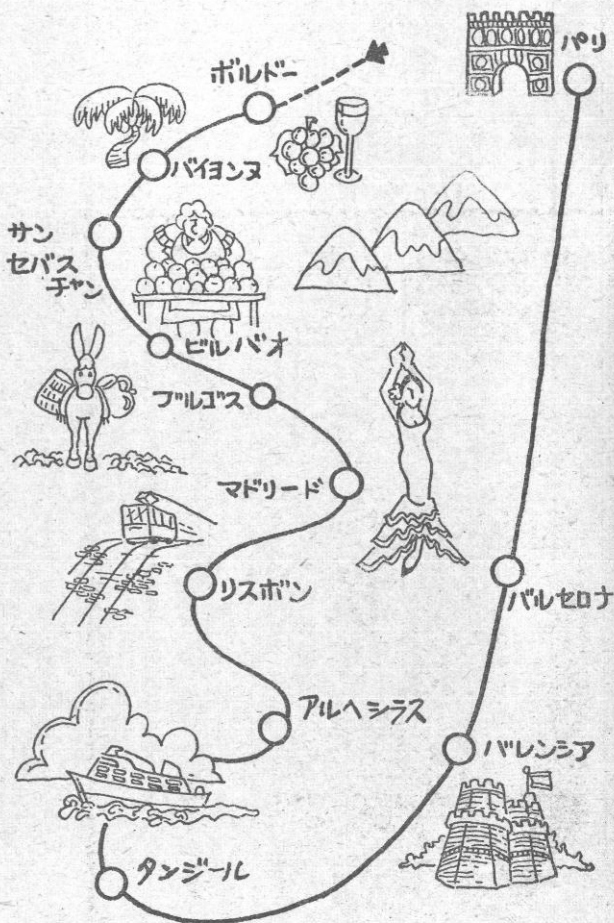 パリ
ボルドー
バイヨンヌ
サン
セバス
チャン
ビルバオ
ブルゴス
マドリード
リスボン
バルセロナ
アルヘシラス
バレンシア
タンジール